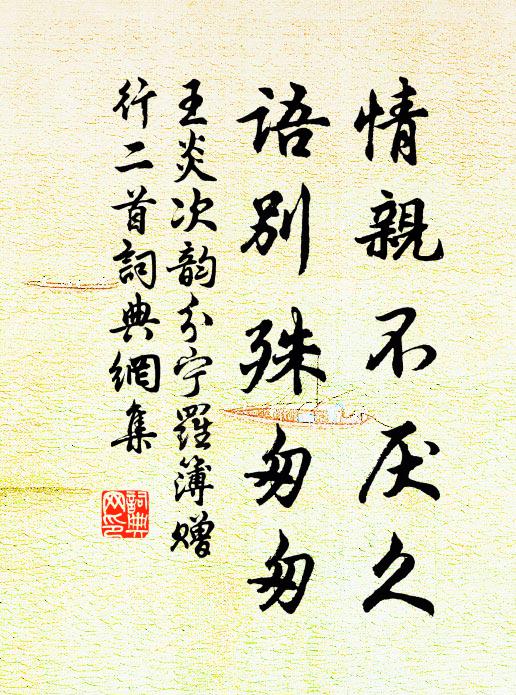 情親不厌久
語別殊匆匆
王炎次韵分宁羅簿贈
行二首詞典網集
詞典
网印